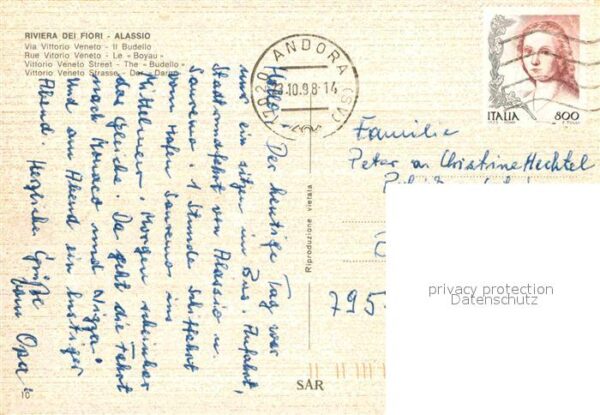 RIVIERA DEI FIORI - ALASSIO
Via Vittorio Veneto - Il Budello
Rue Vitorio Veneto - Le "Boyau"
Vittorio Veneto Street - The "Budello"
Vittorio Veneto Strasse - Der "Darm"
17020 ANDORA (SV)
.10.98-14
ITALIA 800
Hallo! Der heutige Tag war
nur ein sitzen im Bus. Anfahrt,
Stadtrundfahrt von Alassio u.
Sanremo. 1 Stunde Schiffahrt
vom Hafen Sanremo ins
Mittelmeer. Morgen
die Gleiche. Da geht die Fahrt
nach Monaco und Nizza
und am Abend ein lustiger
Abend. Herzliche Grüße
vom Opa
Familie
Peter u. Christine Hechtel
795
Riproduzione vietata
SAR
10
privacy protection
Datenschutz